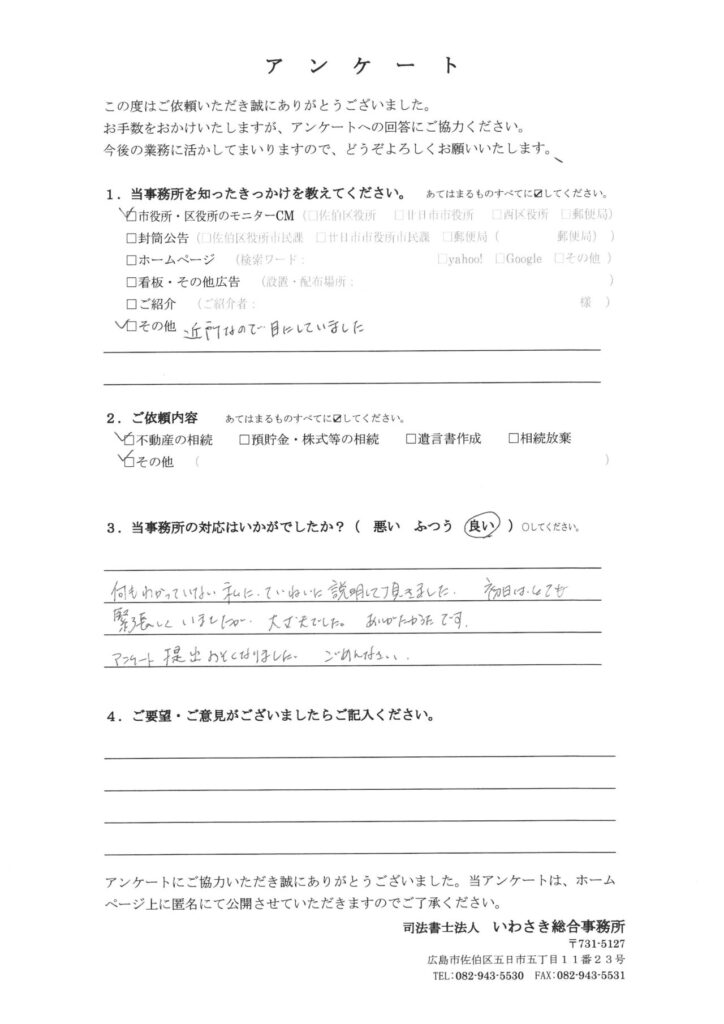 アンケート
この度はご依頼いただき誠にありがとうございました。
お手数をおかけいたしますが、アンケートへの回答にご協力ください。
今後の業務に活かしてまいりますので、どうぞよろしくお願いいたします。
1．当事務所を知ったきっかけを教えてください。 あてはまるものすべてに☑してください。
☑市役所・区役所のモニターCM（□佐伯区役所 □廿日市市役所 □西区役所 □郵便局）
□封筒公告（□佐伯区役所市民課 □廿日市市役所市民課 □郵便局（ 郵便局））
□ホームページ （検索ワード： □yahoo! □Google □その他 ）
□看板・その他広告 （設置・配布場所： ）
□ご紹介 （ご紹介者： 様 ）
☑その他 近所なので目にしていました
2．ご依頼内容 あてはまるものすべてに☑してください。
☑不動産の相続 □預貯金・株式等の相続 □遺言書作成 □相続放棄
☑その他 （ ）
3．当事務所の対応はいかがでしたか？（ 悪い ふつう 良い ）○してください。
何もわかっていない私に、ていねいに説明して頂きました。 初日はとても
緊張して いましたが、大丈夫でした。 ありがとうです。
アンケート提出おそくなりました。 ごめんなさい。
4．ご要望・ご意見がございましたらご記入ください。
アンケートにご協力いただき誠にありがとうございました。当アンケートは、ホーム
ページ上に匿名にて公開させていただきますのでご了承ください。
司法書士法人 いわさき総合事務所
〒731-5127
広島市佐伯区五日市五丁目１１番２３号
TEL:082-943-5530 FAX:082-943-5531